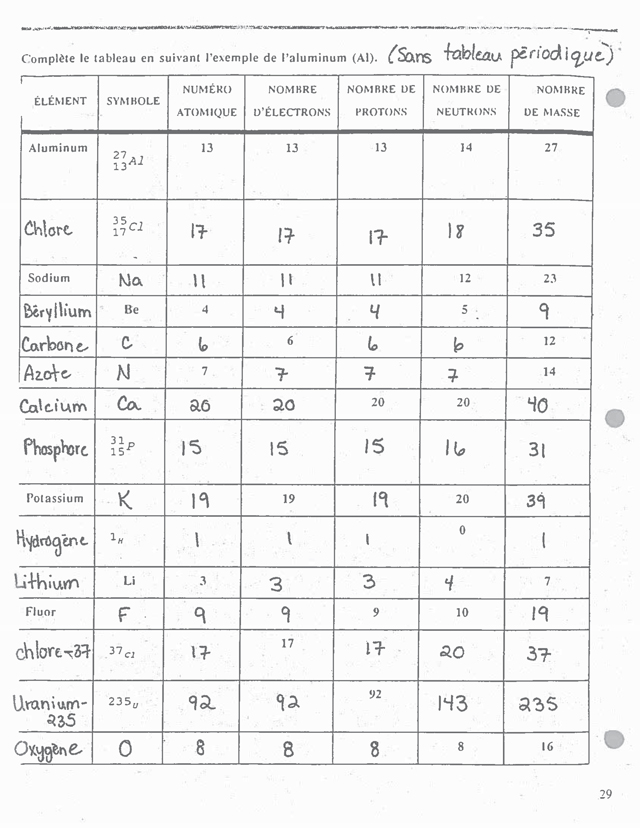 Complète le tableau en suivant l'exemple de l'aluminum (Al). (Sans tableau périodique)
ÉLÉMENT SYMBOLE NUMÉRO ATOMIQUE NOMBRE D'ÉLECTRONS NOMBRE DE PROTONS NOMBRE DE NEUTRONS NOMBRE DE MASSE
Aluminum 27 13 Al 13 13 13 14 27
Chlore 35 17 Cl 17 17 17 18 35
Sodium Na 11 11 11 12 23
Béryllium Be 4 4 4 5 9
Carbone C 6 6 6 6 12
Azote N 7 7 7 7 14
Calcium Ca 20 20 20 20 40
Phosphore 31 15 P 15 15 15 16 31
Potassium K 19 19 19 20 39
Hydrogène 1 H 1 1 1 0 1
Lithium Li 3 3 3 4 7
Fluor F 9 9 9 10 19
chlore-37 37 Cl 17 17 17 20 37
Uranium-235 235 U 92 92 92 143 235
Oxygène O 8 8 8 8 16
29